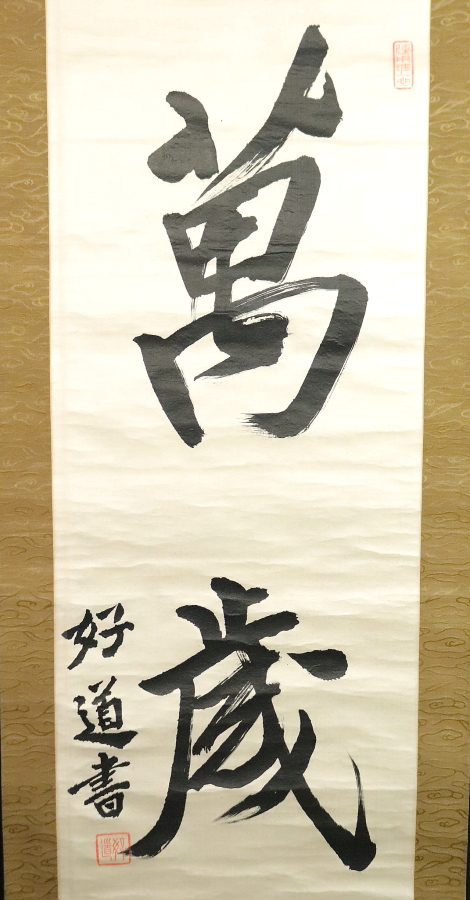 萬歳
好道書